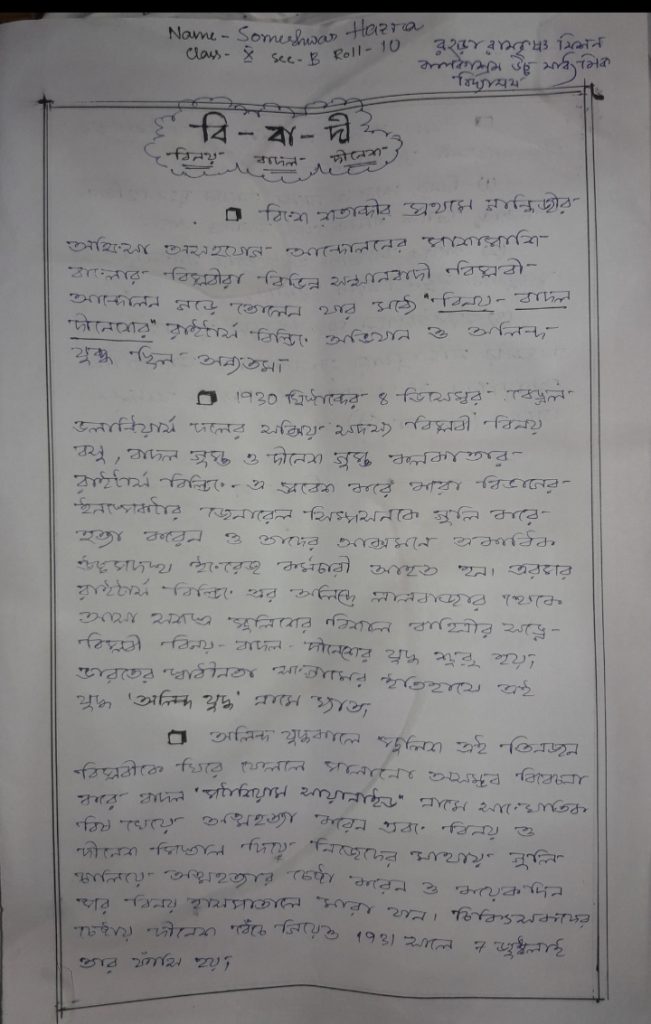 Name- Someshwar Hazra
Class- X Sec- B Roll- 10
রহড়া রামকৃষ্ণ মিশন
বালকাশ্রম উচ্চ মাধ্যমিক
বিদ্যালয়
বি - বা - দী
বিনয় বাদল দীনেশ
বিংশ শতাব্দীর প্রথমে গান্ধিজীর
অহিংসা অসহযোগ আন্দোলনের পাশাপাশি
বাংলার বিপ্লবীরা বিভিন্ন সন্ত্রাসবাদী বিপ্লবী
আন্দোলন গড়ে তোলেন যার মধ্যে "বিনয়- বাদল
দীনেশের" রাইটার্স বিল্ডিং অভিযান ও অলিন্দ
যুদ্ধ ছিল অন্যতম।
1930 খ্রিষ্টাব্দের 8 ডিসেম্বর বেঙ্গল
ভলান্টিয়ার্স দলের সক্রিয় সদস্য বিপ্লবী বিনয়
বসু, বাদল গুপ্ত ও দীনেশ গুপ্ত কলকাতার
রাইটার্স বিল্ডিং-এ প্রবেশ করে কারা বিভাগের
ইনস্পেক্টর জেনারেল সিম্পসনকে গুলি করে
হত্যা করেন ও তাদের আক্রমনে একাধিক
উচ্চপদস্থ ইংরেজ কর্মচারী আহত হন। এরপর
রাইটার্স বিল্ডিং এর অলিন্দে লালবাজার থেকে
আসা সশস্ত্র পুলিশের বিশাল বাহিনীর সঙ্গে
বিপ্লবী বিনয়- বাদল- দীনেশের যুদ্ধ শুরু হয়।
ভারতের স্বাধীনতা সংগ্রামের ইতিহাসে এই
যুদ্ধ 'অলিন্দ যুদ্ধ' নামে খ্যাত।
অলিন্দ যুদ্ধকালে পুলিশ এই তিনজন
বিপ্লবীকে ঘিরে ফেললে পালানো অসম্ভব বিবেচনা
করে বাদল "পটাশিয়াম সায়ানাইড" নামে সাংঘাতিক
বিষ খেয়ে আত্মহত্যা করেন এবং বিনয় ও
দীনেশ পিস্তল দিয়ে নিজেদের মাথায় গুলি
চালিয়ে আত্মহত্যার চেষ্টা করেন ও কয়েকদিন
পর বিনয় হাসপাতালে মারা যান। চিকিৎসকদের
চেষ্টায় দীনেশ বেঁচে গিয়েও 1931 সালে 7 জুলাই
তার ফাঁসি হয়।